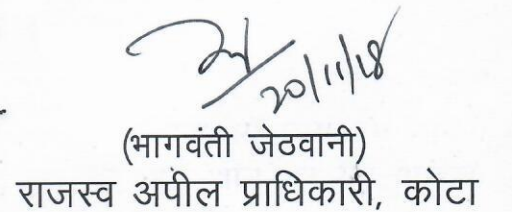 20/11/18
(भागवंती जेठवानी)
राजस्व अपील प्राधिकारी, कोटा